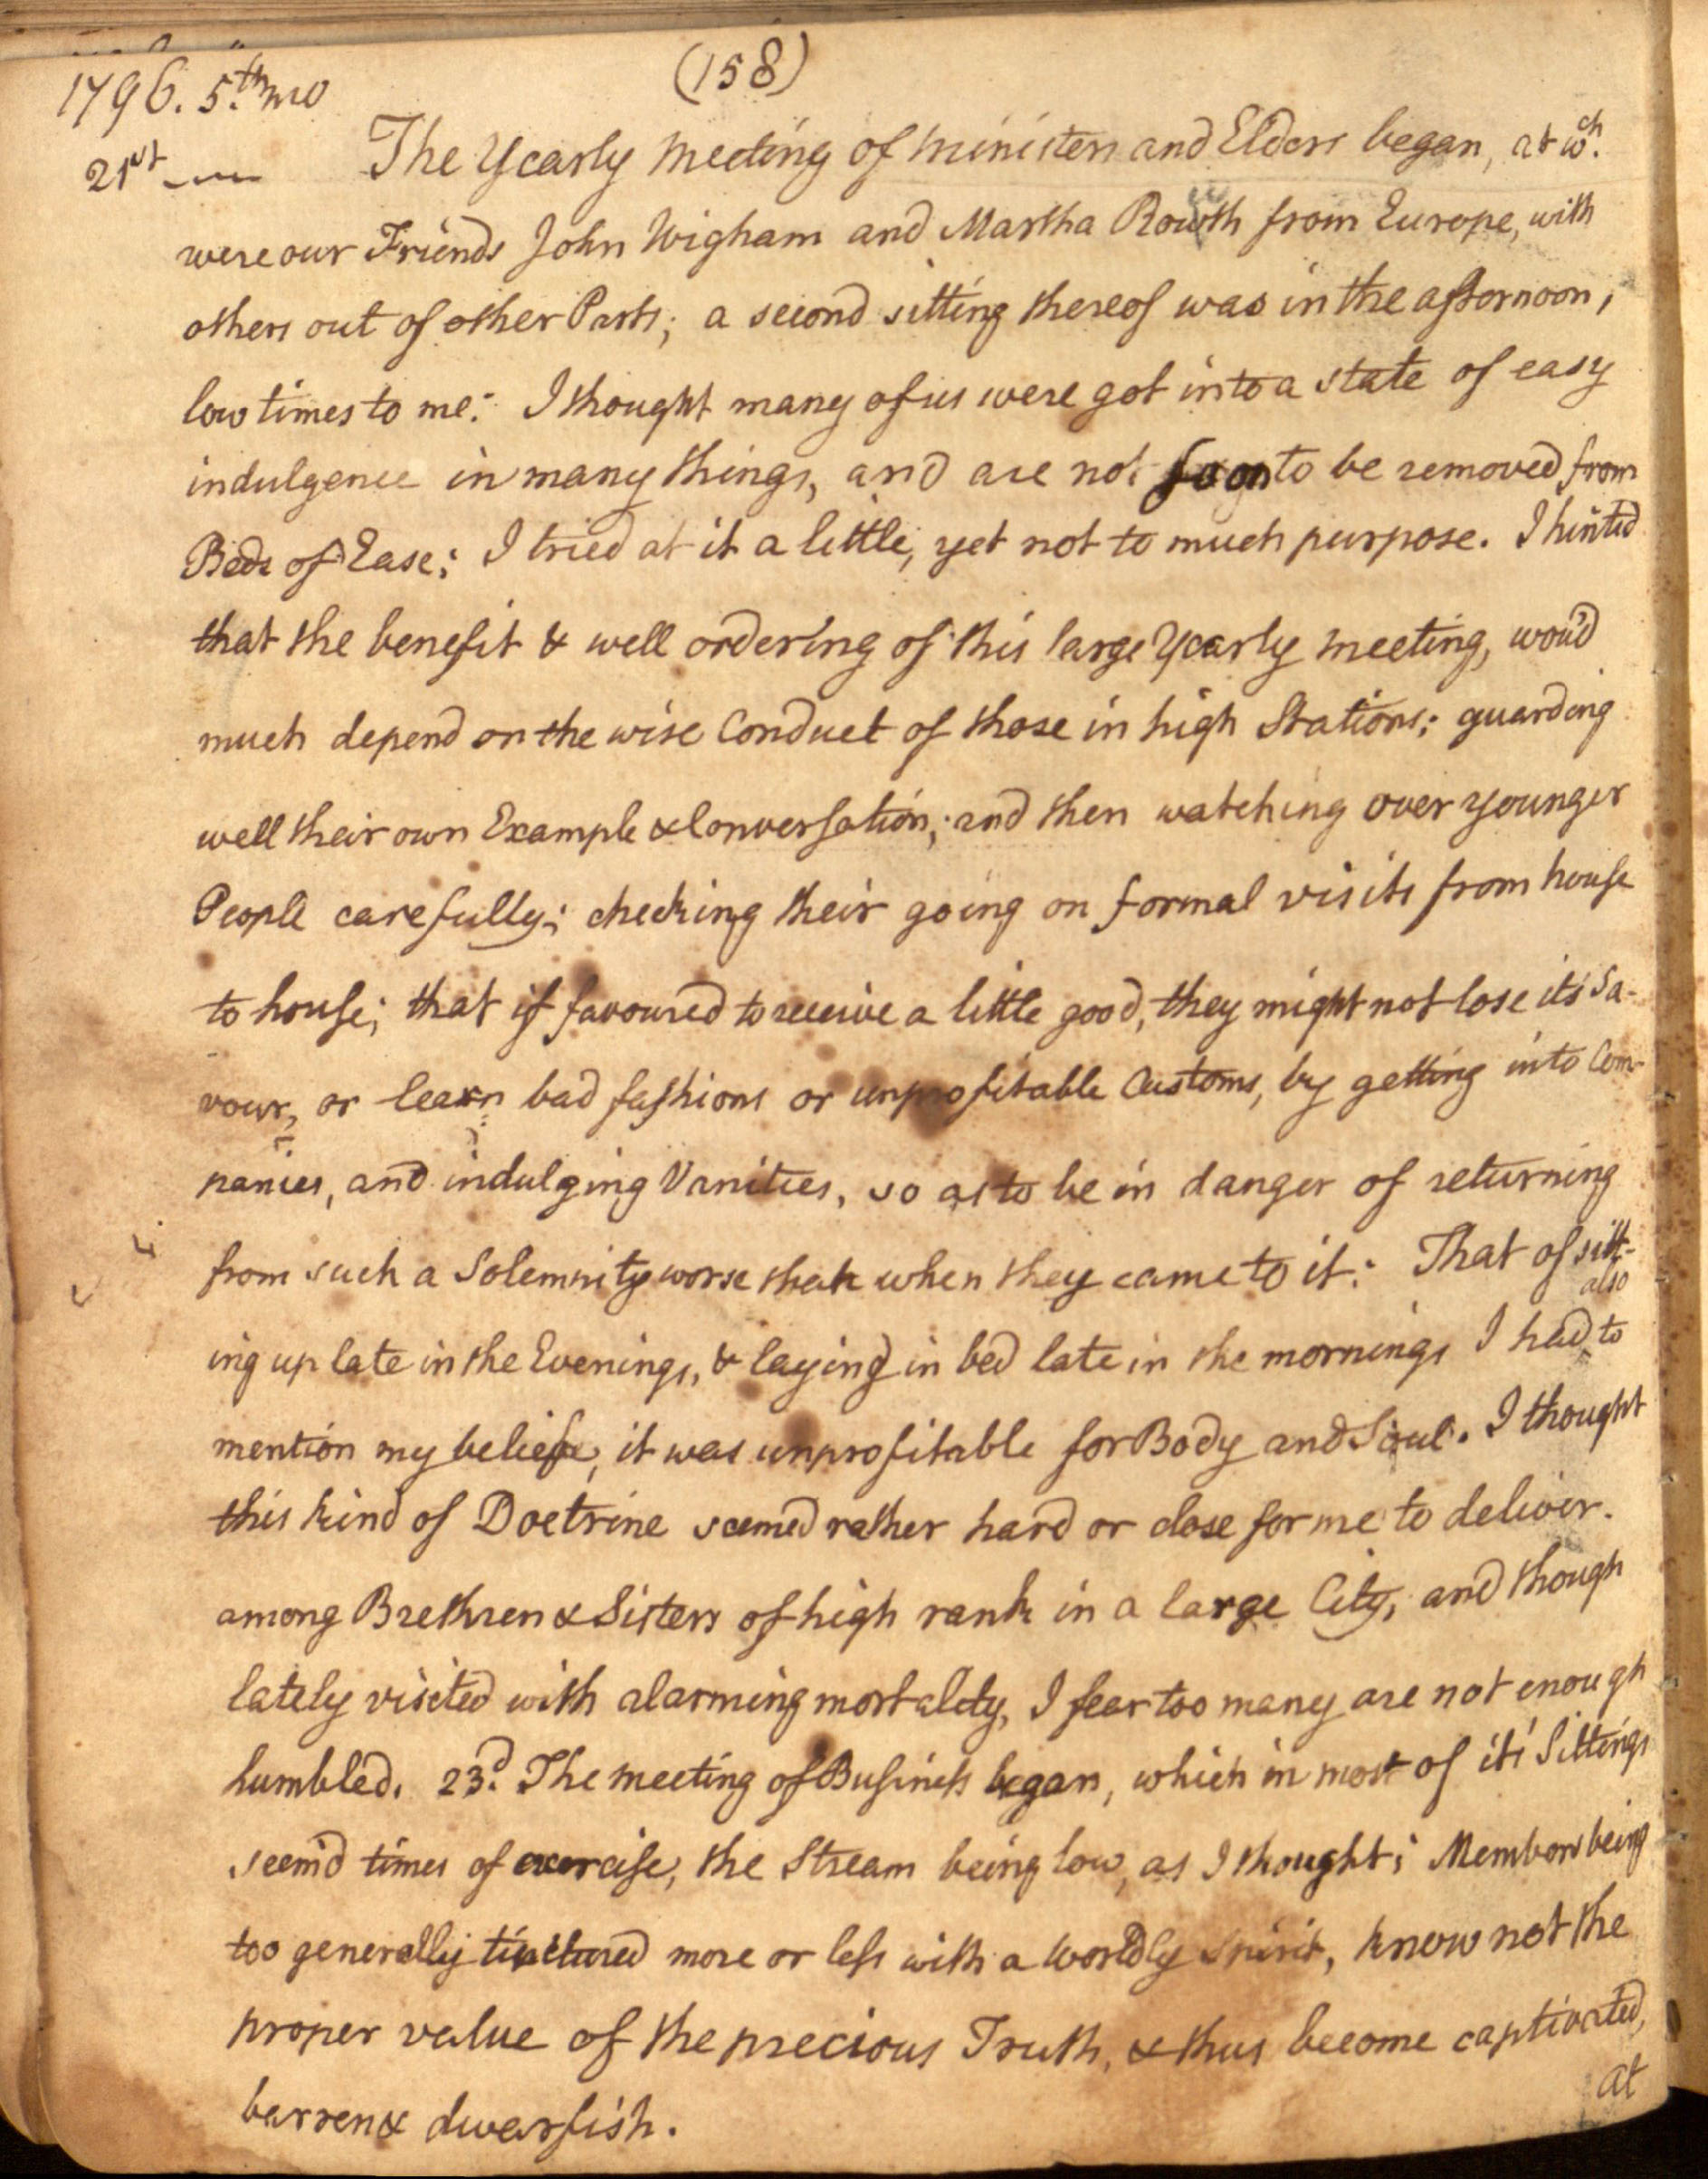 (158)
1796. 5.th mo
21st The Yearly Meeting of Ministers and Elders began, at wch.
were our Friends John Wigham and Martha Routh from Europe, with
others out of other Parts; a second sitting thereof was in the afternoon;
low times to me: I thought many of us were got into a state of easy
indulgence in many things, and are not soon to be removed from
Beds of Ease; I tried at it a little, yet not to much purpose. I hinted
that the benefit & well ordering of this large Yearly Meeting, wou'd
much depend on the wise Conduct of those in high Stations; guarding
well their own Example & Conversation; and then watching over younger
People carefully; checking their going on formal visits from house
to house; that if favoured to receive a little good, they might not lose it's Sa-
vour, or learn bad fashions or unprofitable Customs, by getting into Com-
panies, and indulging Vanities, so as to be in danger of returning
from such a Solemnity worse than when they came to it: That of sitt-
ing up late in the Evenings, & laying in bed late in the mornings I had also to
mention my belief, it was unprofitable for Body and Soul. I thought
this kind of Doctrine seemed rather hard or close for me to deliver.
among Brethren & Sisters of high rank in a large City, and though
lately visited with alarming mortality, I fear too many are not enough
humbled. 23d. The meeting of Business began, which in most of it's Sittings
seem'd times of exercise, the Stream being low, as I thought; Members being
too generally tinctured more or less with a Worldly Spirit, know not the
proper value of the precious Truth, & thus become captivated,
barren & dwarfish.
at